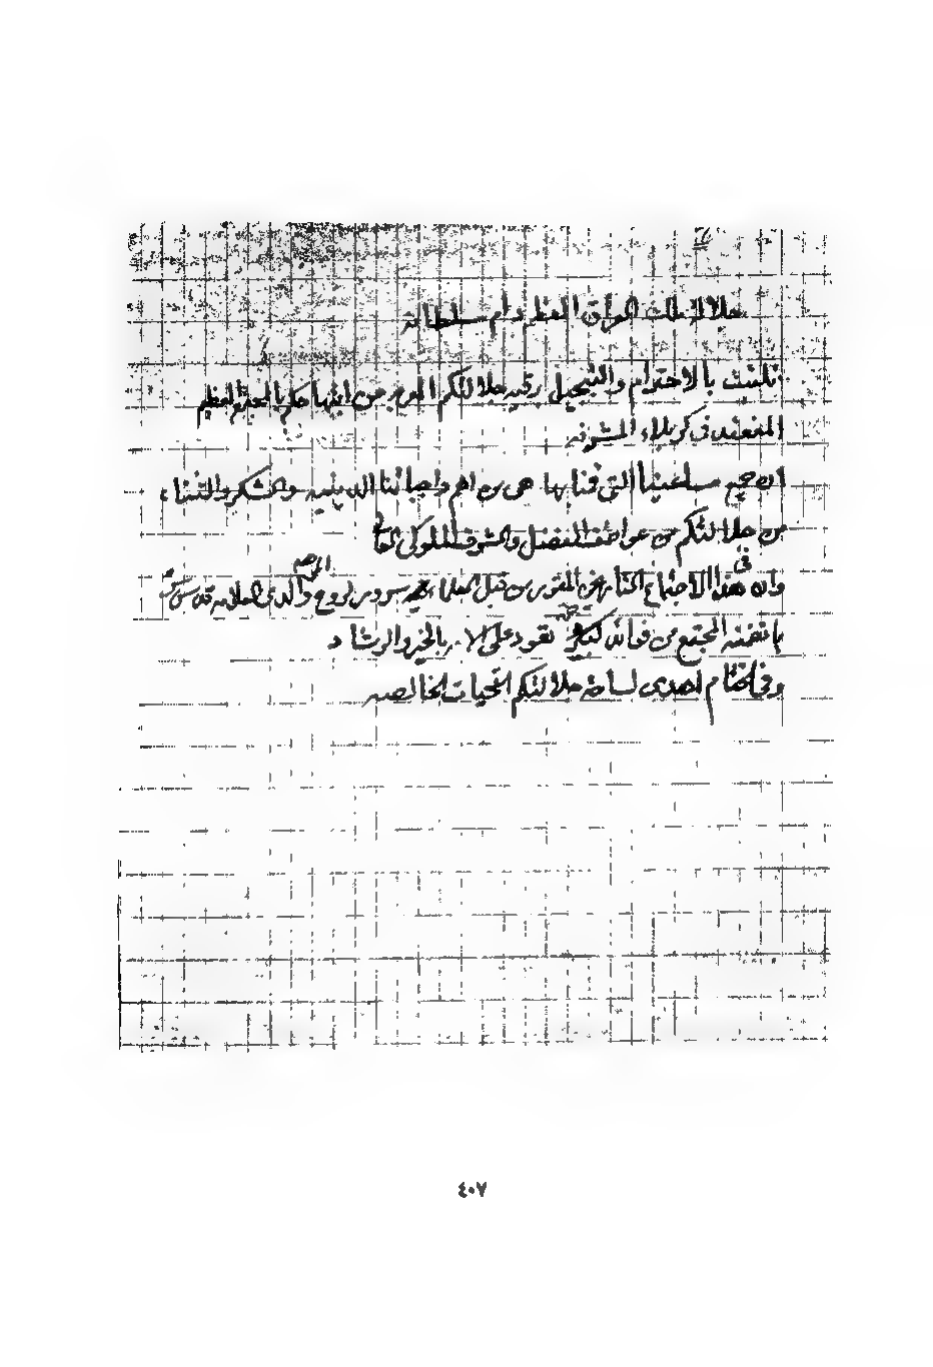 جلالة ملك العراق المعظم دام سلطانه
تلقيت بالاحترام والتبجيل برقية جلالتكم المعربة عن ابتهاجكم بالمجتمع العظيم
المنعقد في كربلاء المشرفة
ان جميع مساعينا التي قمنا بها هي من اهم واجباتنا الدينية والشكر والثناء
من جلالتكم من عواطف التفضل والشرف الملوكي
وان في هذا الاجتماع من قبل العلماء سرور لروح والدي المرحوم العلامة قدس سره
بما تضمنه المجتمع من فوائد تعود على الامة بالخير والرشاد
وفي الختام اهدي لساحة جلالتكم التحيات الخالصة
٤٠٧